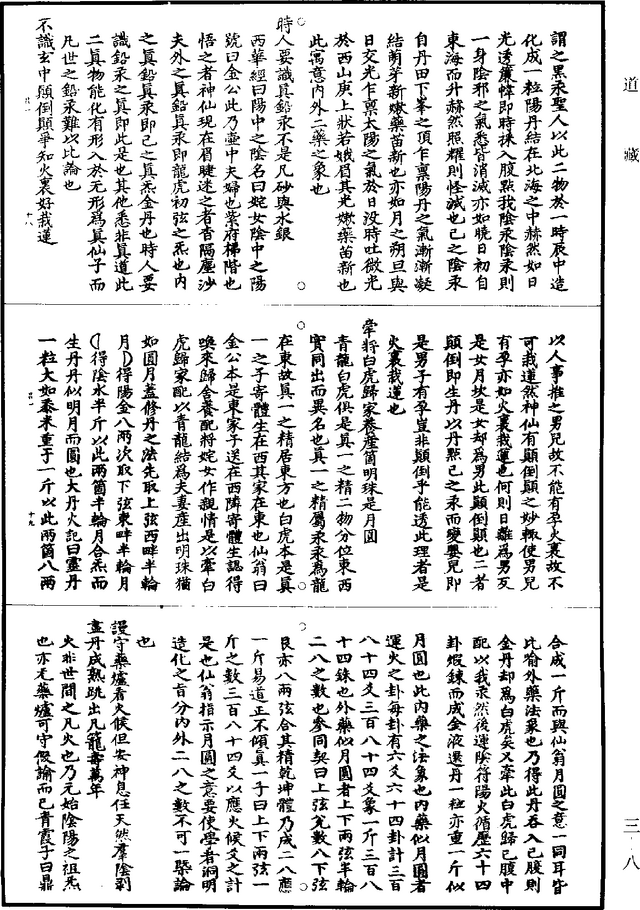 道藏
三·八
謂之黑汞聖人以此二物於一時辰中造
化成一粒陽丹結在北海之中赫然如日
光透簾幃即時採入腹點我陰汞陰汞則
一身陰邪之氣悉皆消滅亦如曉日初自
東海而升赫然照耀則怪滅也己之陰汞
自丹田下峯之頂乍稟陽丹之氣漸漸凝
結萌芽新嫩藥苗新也亦如月之朔旦與
日交光乍稟太陽之氣於日没時吐微光
於西山庚上狀若娥眉其光嫩藥苗新也
此寓意内外二藥之象也
時人要識真鉛汞不是凡砂與水銀
西華經曰陽中之陰名曰姹女陰中之陽
號曰金公此乃壷中夫婦也紫府梯階也
悟之者神仙現在眉睫迷之者杳隔塵沙
夫外之真鉛真汞即龍虎初弦之炁也内
之真鉛真汞即己之真炁金丹也時人要
識鉛汞之真即此是也其他悉非真道此
二真物能化有形入於无形爲真仙子而
凡世之鉛汞難以比論也
不識玄中顛倒顛爭知火裏好栽蓮
十八
以人事推之男兒故不能有孕火裏故不
可栽蓮然神仙有顛倒顛之妙輙使男兒
有孕亦如火裏栽蓮也何則日離爲男反
是女月坎是女却爲男此顛倒顛也二者
顛倒即生丹以丹點己之汞而變嬰兒即
是男子有孕豈非顛倒乎能透此理者是
火裏栽蓮也
牽將白虎歸家養產箇明珠是月圓
青龍白虎俱是真一之精二物分位東西
實同出而異名也真一之精屬汞汞爲龍
在東故真一之精居東方也白虎本是真
一之子寄體生在西其家在東也仙翁曰
金公本是東家子送在西隣寄體生認得
喚來歸舍養配將姹女作親情是以牽白
虎歸家配以青龍結爲夫妻產出明珠猶
如圓月蓋修丹之法先取上弦西畔半輪
月)得陽金八兩次取下弦東畔半輪月
(得陰水半斤以此兩箇半輪月合炁而
生丹丹似明月而圓也大丹火記曰靈丹
一粒大如黍米重于一斤以此兩箇八兩
十九
合成一斤而與仙翁月圓之意一同耳皆
此喻外藥法象也乃得此丹吞入己腹則
金丹却爲白虎矣又牽此白虎歸己腹中
配以我汞然後運陰符陽火循歷六十四
卦煅鍊而成金液還丹一粒亦重一斤似
月圓也此内藥之法象也内藥似月圓者
運火之卦每卦有六爻六十四卦計三百
八十四爻三百八十四爻象一斤三百八
十四銖也外藥似月圓者上下兩弦半輪
二八之數也參同契曰上弦兊數八下弦
艮亦八兩弦合其精乾坤體乃成二八應
一斤易道正不傾真一子曰上下兩弦一
斤之數三百八十四爻以應火候爻之計
是也仙翁指示月圓之意要使學者洞明
造化之旨分内外二八之數不可一槩論
也
謾守藥爐看火候但安神息任天然羣陰剥
盡丹成熟跳出凡籠壽萬年
火非世間之凡火也乃元始陰陽之祖炁
也亦无藥爐可守假諭而已青霞子曰鼎